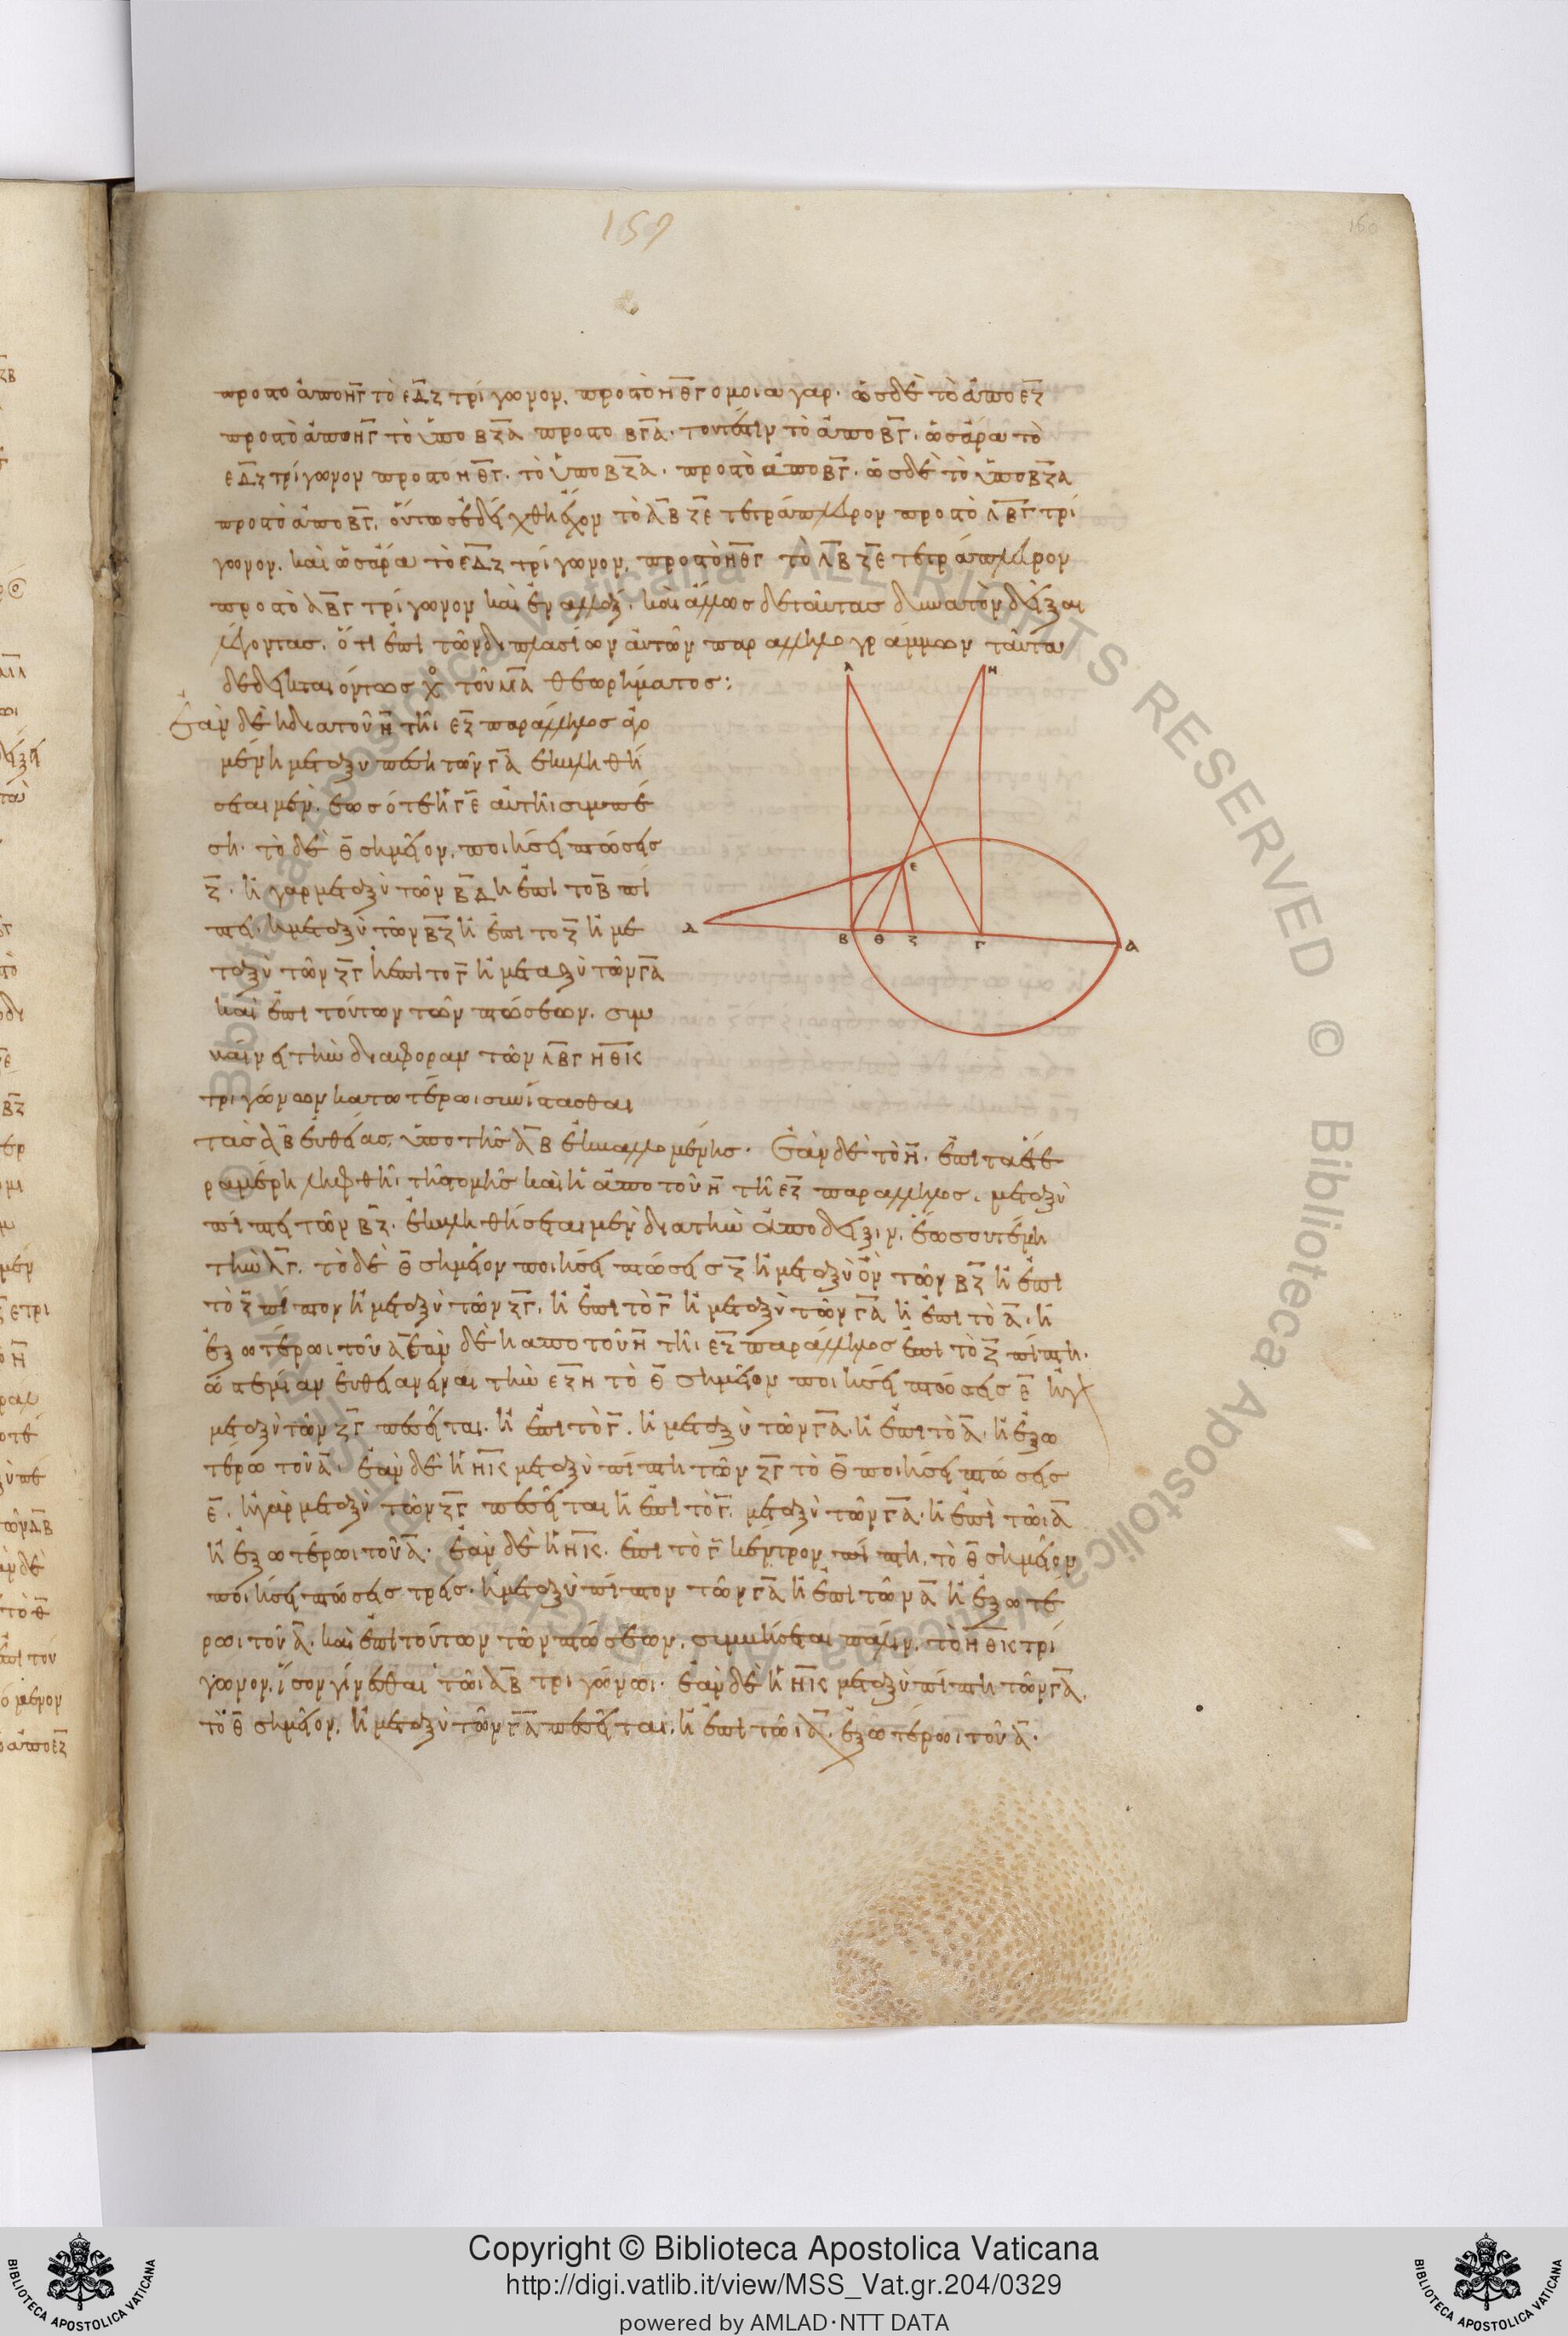 159
160
προς τὸ ἀπὸ ΗΓ τὸ ΕΔΖ τρίγωνον, πρὸς τὸ ΗΘΓ ὅμοια γάρ. ὡς δὲ τὸ ἀπὸ ΕΖ
πρὸς τὸ ἀπὸ ΗΓ τὸ ὑπὸ ΒΖΑ πρὸς τὸ ΒΓΑ. τουτέστιν τὸ ἀπὸ ΒΓ. ὡς ἄρα τὸ
ΕΔΖ τρίγωνον πρὸς τὸ ΗΘΓ. τὸ ὑπὸ ΒΖΑ. πρὸς τὸ ἀπὸ ΒΓ. ὡς δὲ τὸ ὑπὸ ΒΖΑ
πρὸς τὸ ἀπὸ ΒΓ, οὕτως ἐδείχθη ἔχον τὸ ΛΒΖΕ τετράπλευρον πρὸς τὸ ΛΒΓ τρί
γωνον. καὶ ὡς ἄρα τὸ ΕΔΖ τρίγωνον, πρὸς τὸ ΗΘΓ τὸ ΛΒΖΕ τετράπλευρον
πρὸς τὸ ΛΒΓ τρίγωνον καὶ ἐναλλάξ. καὶ ἄλλως δὲ ταύτας δυνατὸν δεῖξαι
λέγοντας, ὅτι ἐπὶ τῶν διπλασίων αὐτῶν παραλληλογράμμων ταῦτα
δέδεικται οὕτως τοῦ ΜΑ θεωρήματος:
Ἐὰν δὲ ἡ διὰ τοῦ Η τῆι ΕΖ παράλληλος ἀγο
μένη μεταξὺ πέσῃ τῶν ΓΑ ἐκβληθή
σεται μέν. ἕως ὅτε ἡ ΓΕ αὐτῆι συμπέ
σῃ. τὸ δὲ Θ σημεῖον, ποιήσει πτώσεις
Ζ. ἢ γὰρ μεταξὺ τῶν ΒΔ ἢ ἐπὶ τὸ Β πί
πτει. ἢ μεταξὺ τῶν ΒΖ ἢ ἐπὶ τὸ Ζ ἢ με
ταξὺ τῶν ΖΓ ἢ ἐπὶ τὸ Γ ἢ μεταξὺ τῶν ΓΑ
καὶ ἐπὶ τούτων τῶν πτώσεων. συμ
βαίνει τὴν διαφορὰν τῶν ΛΒΓ ΗΘΚ
τριγώνων κατωτέρωι συνίστασθαι
τᾶς ΛΒ εὐθείας, ὑπὸ τῆς ΛΒ ἐκβαλλομένης. Ἐὰν δὲ τὸ Η. ἐπὶ τὰ ἕτε
ρα μέρη ληφθῆι τῆς τομῆς καὶ ἡ ἀπὸ τοῦ Η τῆι ΕΖ παράλληλος. μεταξὺ
πίπτει τῶν ΒΖ. ἐκβληθήσεται μὲν διὰ τὴν ἀπόδειξιν. ἕως οὗ τέμῃ
τὴν ΛΓ. τὸ δὲ Θ σημεῖον ποιήσει πτώσεις Ζ ἢ μεταξὺ ὂν τῶν ΒΖ ἢ ἐπὶ
τὸ Ζ πίπτον ἢ μεταξὺ τῶν ΖΓ, ἢ ἐπὶ τὸ Γ ἢ μεταξὺ τῶν ΓΑ ἢ ἐπὶ τὸ Α. ἢ
ἐξωτέρωι τοῦ Α ἐὰν δὲ ἡ ἀπὸ τοῦ Η τῆι ΕΖ παράλληλος ἐπὶ τὸ Ζ πίπτη.
ὥστε μίαν εὐθεῖαν εἶναι τὴν ΕΖΗ τὸ Θ σημεῖον ποιήσει πτώσεις Ε ἢ γὰρ
μεταξὺ τῶν ΖΓ πεσεῖται. ἢ ἐπὶ τὸ Γ. ἢ μεταξὺ τῶν ΓΑ. ἢ ἐπὶ τὸ Α. ἢ ἐξω
τέρω τοῦ Α. ἐὰν δὲ ἡ ΗΚ μεταξὺ πίπτη τῶν ΖΓ τὸ Θ ποιήσει πτώσεις
Ε. ἢ γὰρ μεταξὺ τῶν ΖΓ πεσεῖται ἢ ἐπὶ τὸ Γ. μεταξὺ τῶν ΓΑ. ἢ ἐπὶ τῶι Α
ἢ ἐξωτέρωι τοῦ Α. ἐὰν δὲ ἡ ΗΚ. ἐπὶ τὸ Γ κέντρον πίπτη, τὸ Θ σημεῖον
ποιήσει πτώσεις τρεῖς. ἢ μεταξὺ πίπτον τῶν ΓΑ ἢ ἐπὶ τῶν Α ἢ ἐξωτέ
ρωι τοῦ Α. καὶ ἐπὶ τούτων τῶν πτώσεων, συμβήσεται πάλιν, τὸ ΗΘΚ τρί
γωνον, ἴσον γίνεσθαι τῶι ΛΒ τριγώνωι. ἐὰν δὲ ἡ ΗΚ μεταξὺ πίπτη τῶν ΓΑ,
τὸ Θ σημεῖον, ἢ μεταξὺ τῶν ΓΑ πεσεῖται, ἢ ἐπὶ τῶι Α. ἐξωτέρωι τοῦ Α.
Λ Η
Ε
Δ Β Θ Ζ Γ Α
Copyright © Biblioteca Apostolica Vaticana
http://digi.vatlib.it/view/MSS_Vat.gr.204/0329
powered by AMLAD·NTT DATA
BIBLIOTECA APOSTOLICA VATICANA
BIBLIOTECA APOSTOLICA VATICANA